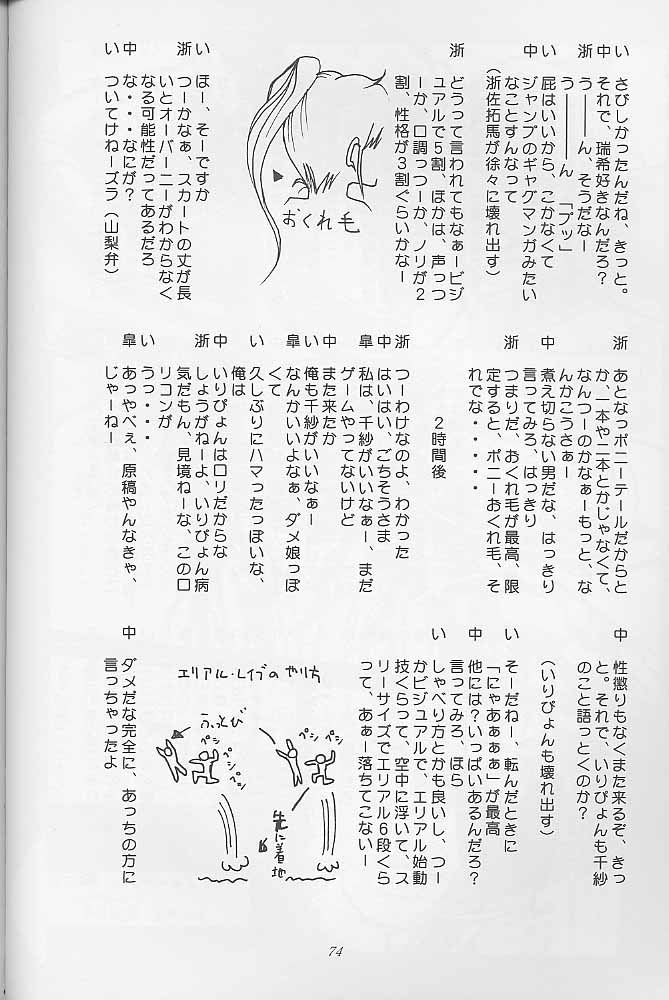 い　さびしかったんだね、きっと。
中　それで、瑞希好きなんだろ？
浙　う――――ん、そうだなー
　　う――――ん　「プッ」
い　屁はいいから、こかなくて
中　ジャンプのギャグマンガみたい
　　なことすんなって
　　（浙佐拓馬が徐々に壊れ出す）
浙　どうって言われてもなぁービジ
　　ュアルで５割、ほかは、声っつ
　　ーか、口調っつーか、ノリが２
　　割、性格が３割ぐらいかなー
おくれ毛
い　ほー、そーですか
浙　つーかなぁ、スカートの丈が長
　　いとオーバーニーがわからなく
　　なる可能性だってあるだろ
中　な・・・なにが？
い　ついてけねーズラ（山梨弁）
浙　あとなっポニーテールだからと
　　か、一本や二本とかじゃなくて、
　　なんつーのかなぁーもっと、な
　　んかこうさぁー
中　煮え切らない男だな、はっきり
　　言ってみろ、はっきり
浙　つまりだ、おくれ毛が最高、限
　　定すると、ポニーおくれ毛、そ
　　れでな・・・・
２時間後
浙　つーわけなのよ、わかった
中　はいはい、ごちそうさま
皐　私は、千紗がいいなぁー、まだ
　　ゲームやってないけど
中　また来たか
い　俺も千紗がいいなぁー
皐　なんかいいよなぁ、ダメ娘っぽ
　　くて
い　久しぶりにハマったっぽいな、
　　俺は
中　いりぴょんはロリだからな
浙　しょうがねーよ、いりぴょん病
　　気だもん、見境ねーな、このロ
　　リコンが
い　うっ・・・
皐　あっやべぇ、原稿やんなきゃ、
　　じゃーねー
中　性懲りもなくまた来るぞ、きっ
　　と。それで、いりぴょんも千紗
　　のこと語っとくのか？
　　（いりぴょんも壊れ出す）
い　そーだねー、転んだときに
　　「にゃあぁぁぁ」が最高
中　他には？いっぱいあるんだろ？
　　言ってみろ、ほら
い　しゃべり方とかも良いし、つー
　　かビジュアルで、エリアル始動
　　技くらって、空中に浮いて、ス
　　リーサイズでエリアル６段くら
　　って、あぁー落ちてこないー
エリアル・レイブのやり方
ペシ
ペシ
ペシ
ふっとび
ペシ
ペシ
ペシ
先に着地
中　ダメだな完全に、あっちの方に
　　言っちゃったよ
74